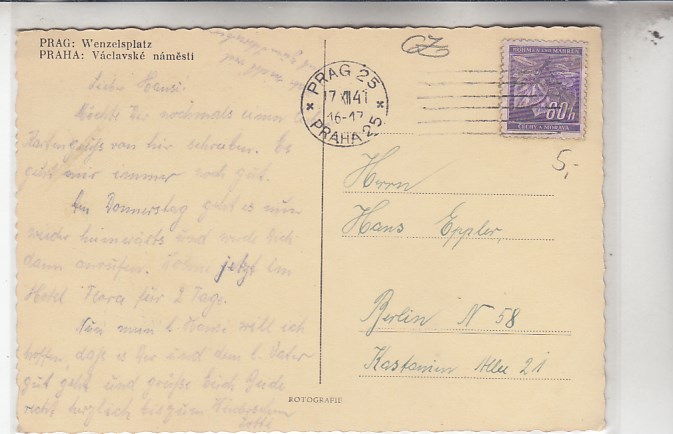 PRAG: Wenzelsplatz
PRAHA: Václavské náměstí
Lieber Hansi!
Möchte Dir nochmals einen
Kartengruß von hier schreiben. Es
geht mir immer noch gut.
Am Donnerstag geht es nun
wieder heimwärts und werde Dich
dann anrufen. Wohne jetzt im
Hotel für 2 Tage.
Nun mein l. Hansi will ich
hoffen, daß es Dir und dem l. Vater
gut geht und grüße Euch beide
recht herzlich bis zum Wiedersehen
CZ
PRAG 25
17 XII 41
16-17
PRAHA 25
BÖHMEN U. MÄHREN
60h
ČECHY A MORAVA
5,-
Herrn
Hans Eppler
Berlin N 58
Kastanien Allee 21
ROTOGRAFIE